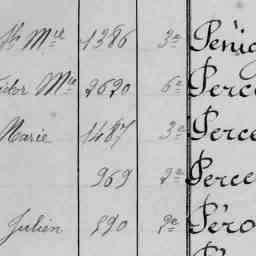 Mel 1386 3e Pénic
idor Mie 2620 6e Perce
Marie 1487 3e Perce
969 2e Perce
Julien 890 2e Péro